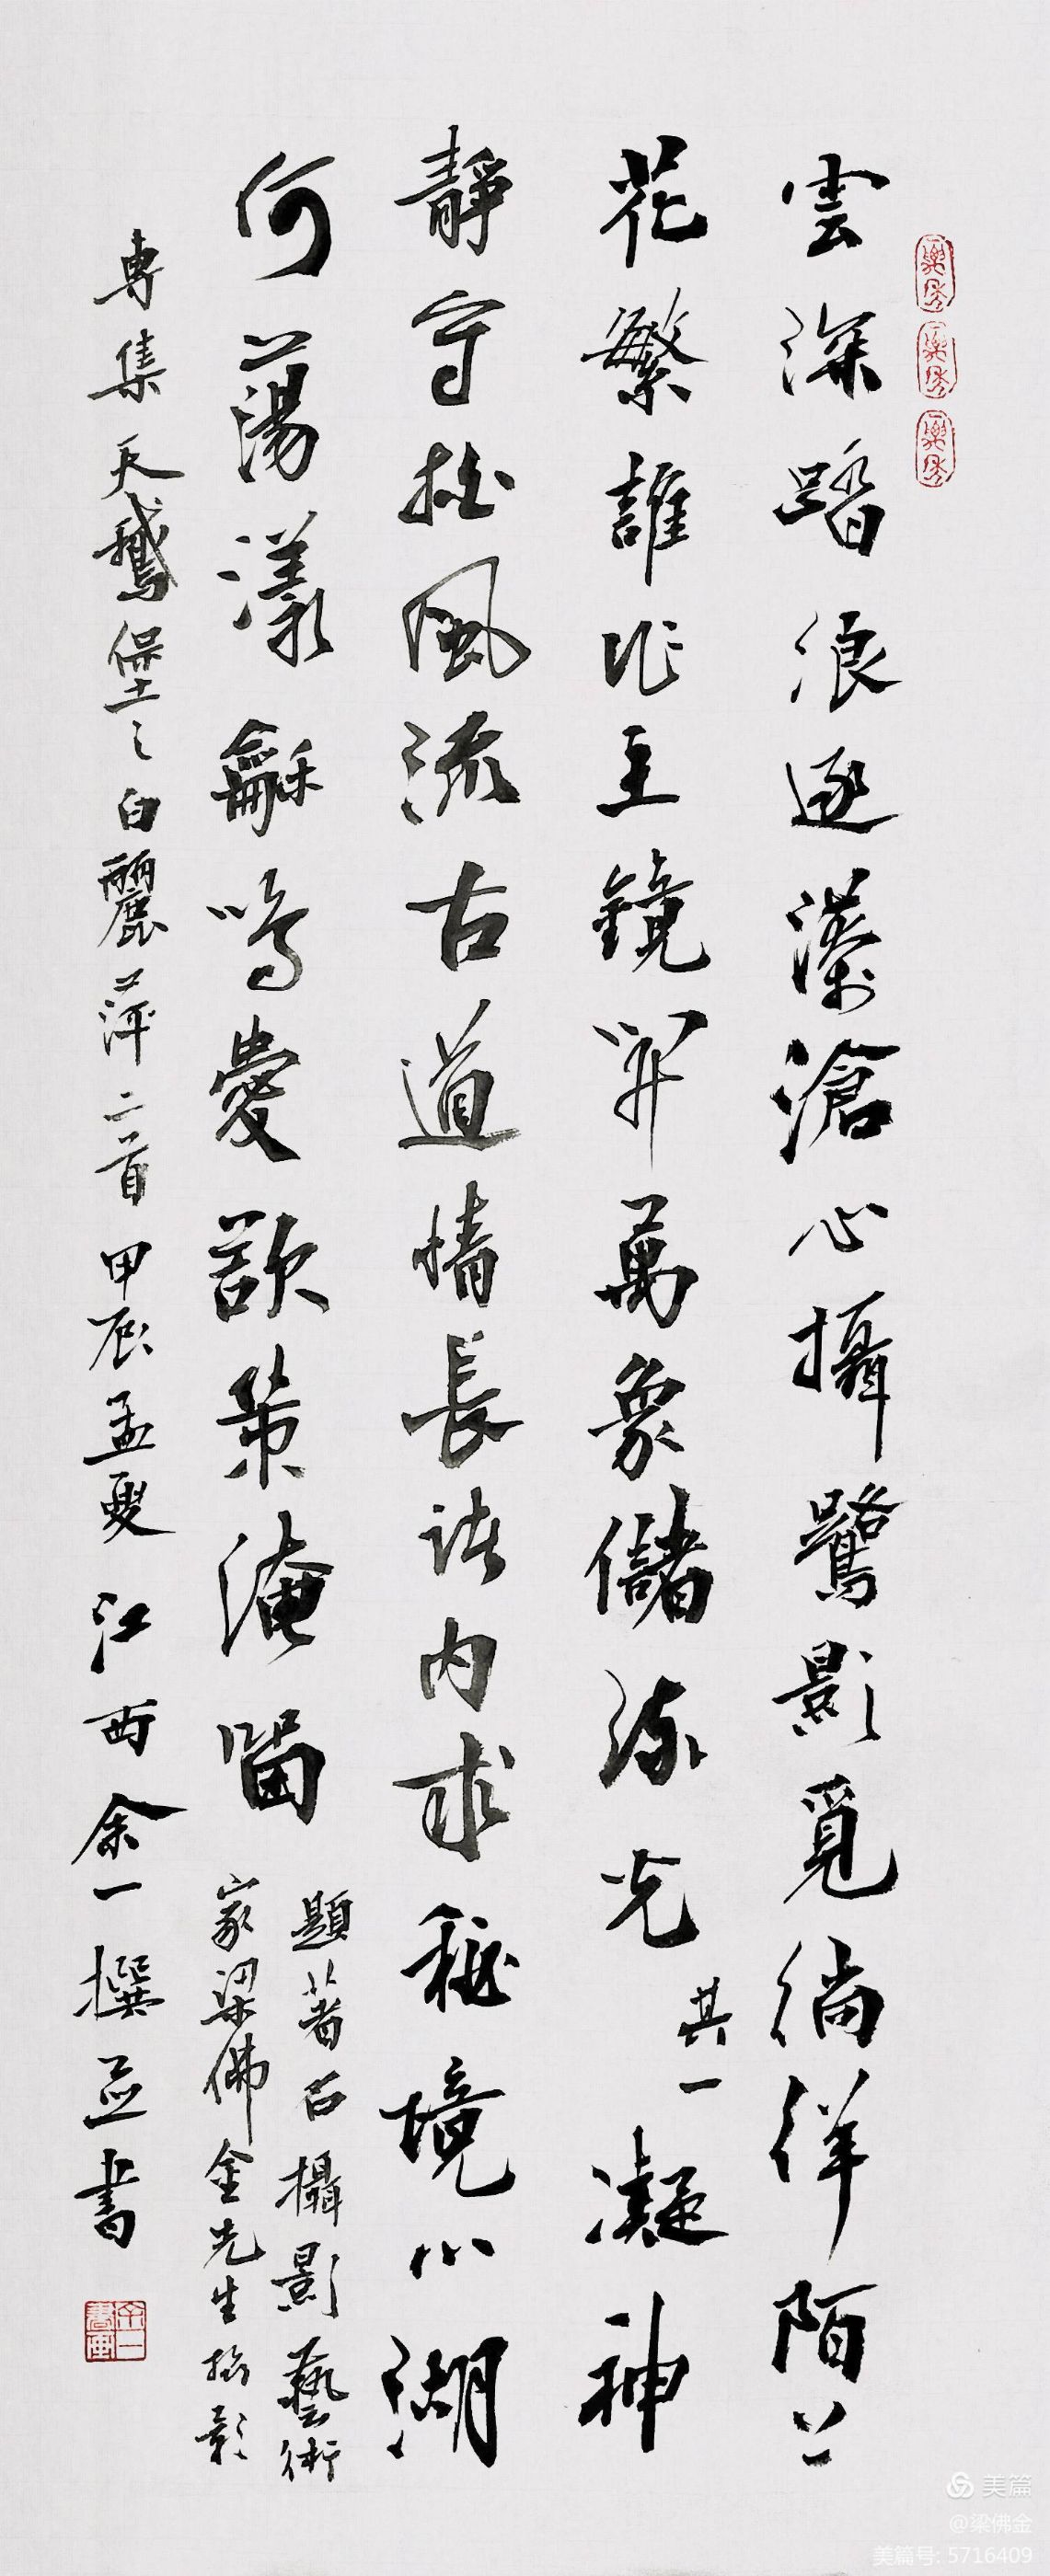 雲深踏浪逐濠滄心攝鷺影覓徜徉陌上
花繁誰作主鏡開萬象儲流光其一凝神
靜守拍風流古道情長詩內求秘境小湖
何蕩漾龢鳴愛歌策淹留
題著名攝影藝術
家梁佛金先生攝影
專集天鵝堡之白麗萍二首甲辰孟夏江西余一撰並書
美篇
@梁佛金
美篇号: 5716409